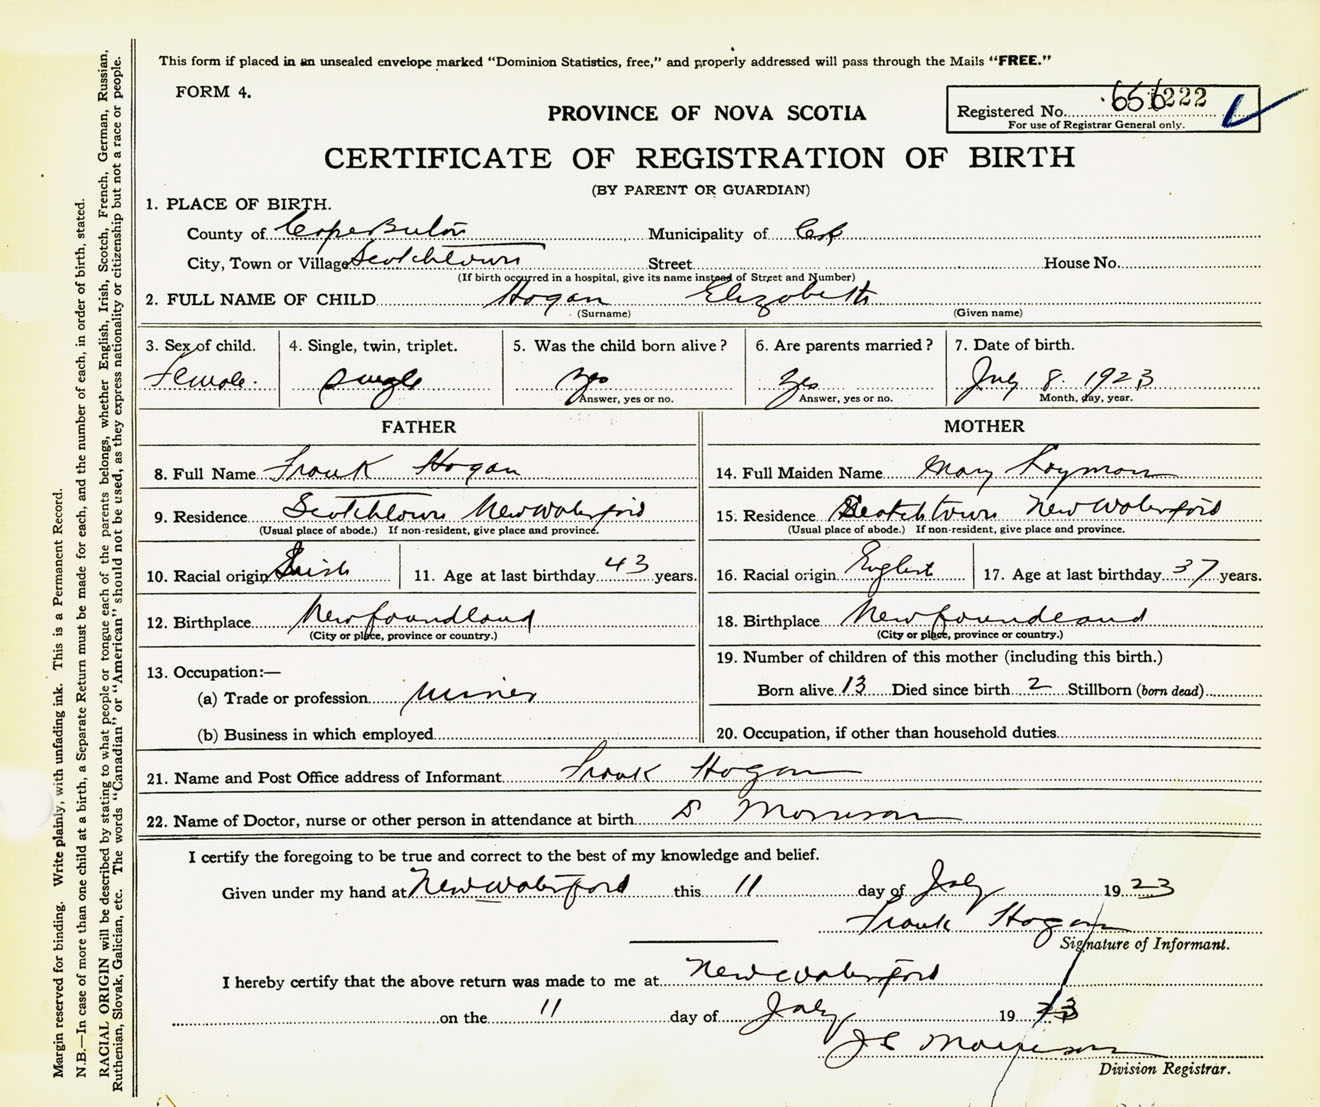 This form if placed in an unsealed envelope marked "Dominion Statistics, free," and properly addressed will pass through the Mails "FREE."
FORM 4.
PROVINCE OF NOVA SCOTIA
Registered No. 656222
For use of Registrar General only.
CERTIFICATE OF REGISTRATION OF BIRTH
(BY PARENT OR GUARDIAN)
1. PLACE OF BIRTH.
County of Cape Breton Municipality of CB
City, Town or Village Scotchtown Street House No.
(If birth occurred in a hospital, give its name instead of Street and Number)
2. FULL NAME OF CHILD Hogan Elizabeth
(Surname) (Given name)
3. Sex of child. 4. Single, twin, triplet. 5. Was the child born alive? 6. Are parents married? 7. Date of birth.
Female. single yes yes July 8 1923
Answer, yes or no. Answer, yes or no. Month, day, year.
FATHER MOTHER
8. Full Name Frank Hogan 14. Full Maiden Name Mary Layman
9. Residence Scotchtown New Waterford 15. Residence Scotchtown New Waterford
(Usual place of abode.) If non-resident, give place and province. (Usual place of abode.) If non-resident, give place and province.
10. Racial origin Irish 11. Age at last birthday 43 years. 16. Racial origin English 17. Age at last birthday 37 years.
12. Birthplace Newfoundland 18. Birthplace Newfoundland
(City or place, province or country.) (City or place, province or country.)
19. Number of children of this mother (including this birth.)
13. Occupation:—
(a) Trade or profession miner Born alive 13 Died since birth 2 Stillborn (born dead)
(b) Business in which employed 20. Occupation, if other than household duties
21. Name and Post Office address of Informant Frank Hogan
22. Name of Doctor, nurse or other person in attendance at birth D Morrison
I certify the foregoing to be true and correct to the best of my knowledge and belief.
Given under my hand at New Waterford this 11 day of July 1923
Frank Hogan
Signature of Informant.
I hereby certify that the above return was made to me at New Waterford
on the 11 day of July 1923
J C Morrison
Division Registrar.
Margin reserved for binding. Write plainly, with unfading ink. This is a Permanent Record.
N.B.—In case of more than one child at a birth, a Separate Return must be made for each, and the number of each, in order of birth, stated.
RACIAL ORIGIN will be described by stating to what people or tongue each of the parents belongs, whether English, Irish, Scotch, French, German, Russian,
Ruthenian, Slovak, Galician, etc. The words "Canadian" or "American" should not be used, as they express nationality or citizenship but not a race or people.